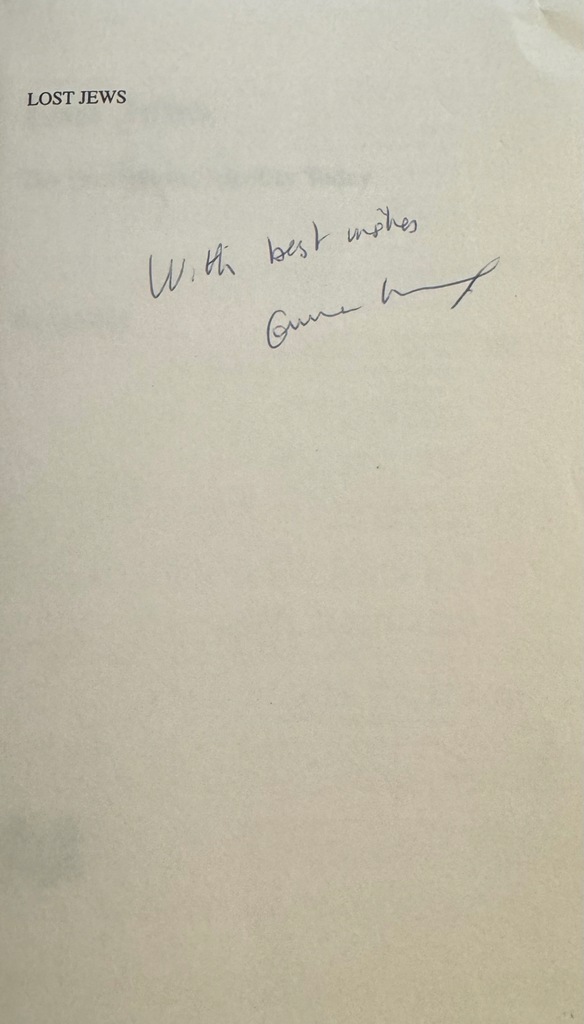 LOST JEWS
With best wishes